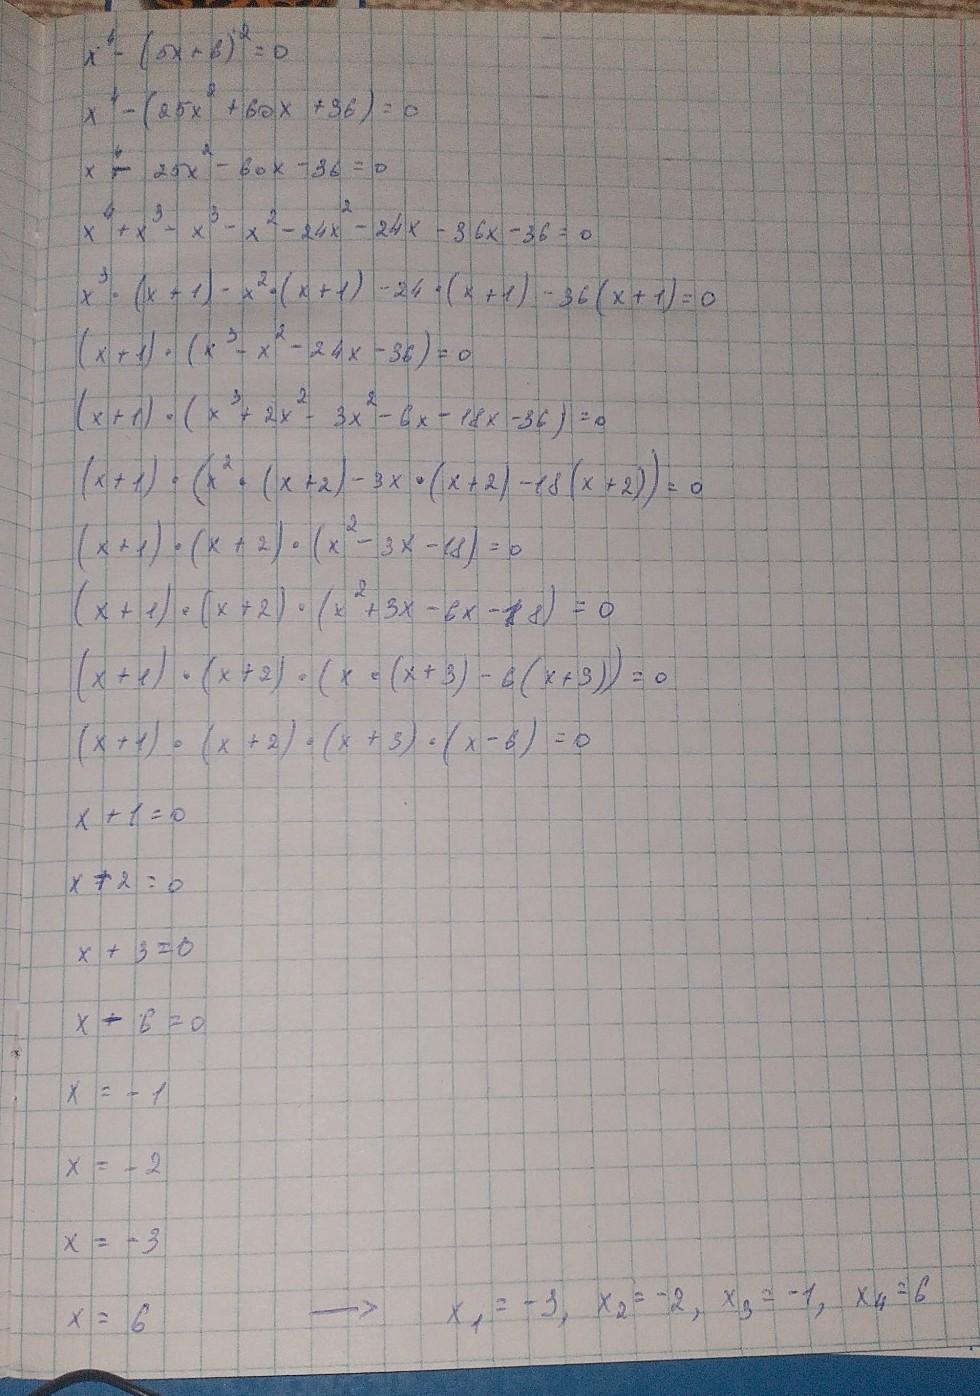 x⁴ - (5x+6)² = 0
x⁴ - (25x² + 60x + 36) = 0
x⁴ - 25x² - 60x - 36 = 0
x⁴ + x³ - x³ - x² - 24x² - 24x - 36x - 36 = 0
x³ · (x+1) - x² · (x+1) - 24 · (x+1) - 36(x+1) = 0
(x+1) · (x³ - x² - 24x - 36) = 0
(x+1) · (x³ + 2x² - 3x² - 6x - 18x - 36) = 0
(x+1) · (x² · (x+2) - 3x · (x+2) - 18(x+2)) = 0
(x+1) · (x+2) · (x² - 3x - 18) = 0
(x+1) · (x+2) · (x² + 3x - 6x - 18) = 0
(x+1) · (x+2) · (x · (x+3) - 6(x+3)) = 0
(x+1) · (x+2) · (x+3) · (x-6) = 0
x + 1 = 0
x + 2 = 0
x + 3 = 0
x - 6 = 0
x = -1
x = -2
x = -3
x = 6 → x₁ = -3, x₂ = -2, x₃ = -1, x₄ = 6